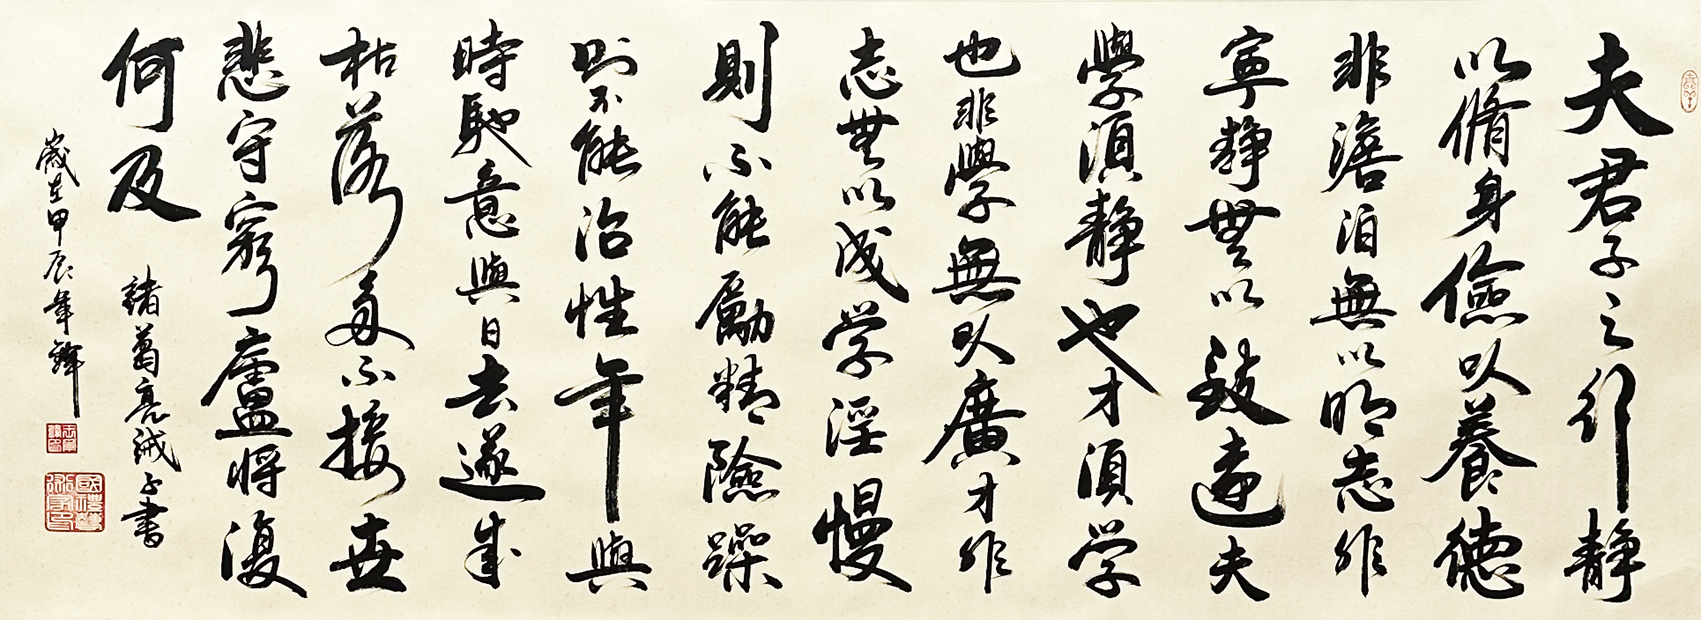 夫君子之行静
以脩身儉以養德
非澹泊無以明志非
寧静無以致遠夫
學須静也才須学
也非學無以廣才非
志無以成学淫慢
則不能勵精險躁
則不能治性年與
時馳意與日去遂成
枯落多不接世
悲守窮廬將復
何及
諸葛亮誡子書
歲在甲辰年鋒